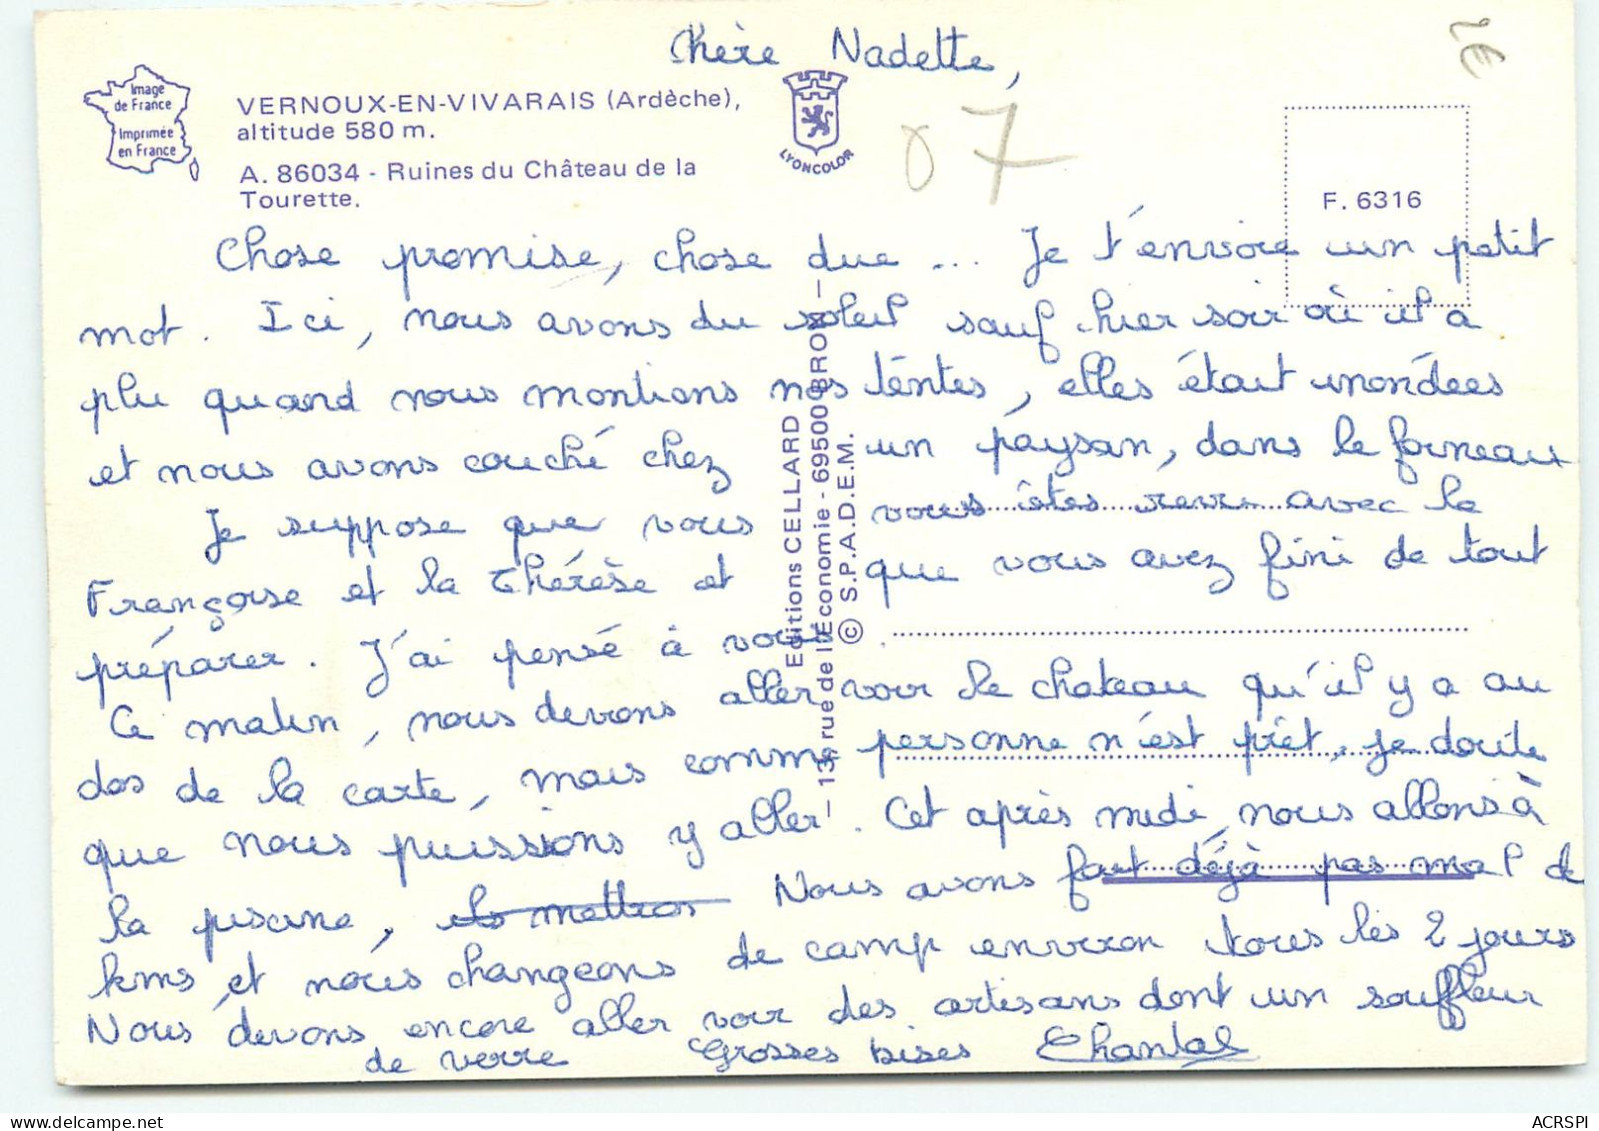 Chère Nadette,
2€
Image
de France
Imprimée
en France
VERNOUX-EN-VIVARAIS (Ardèche),
altitude 580 m.
A. 86034 - Ruines du Château de la
Tourette.
LYONCOLOR
07
F. 6316
Editions CELLARD
13, rue de l'Économie - 69500 BRON
© S.P.A.D.E.M.
Chose promise, chose due ... Je t'envoie un petit
mot. Ici, nous avons du soleil sauf hier soir où il a
plu quand nous montions nos tentes, elles était inondées
et nous avons couché chez un paysan, dans le forneau
Je suppose que vous vous êtes revu avec la
Françoise et la Thérèse et que vous avez fini de tout
préparer. J'ai pensé à vous.
Ce matin, nous devons aller voir le chateau qu'il y a au
dos de la carte, mais comme personne n'est prêt, je doute
que nous puissions y aller. Cet après midi, nous allons à
la piscine, Nous avons fait déjà pas mal de
kms et nous changeons de camp environ tous les 2 jours
Nous devons encore aller voir des artisans dont un souffleur
de verre Grosses bises Chantal
ACRSPI